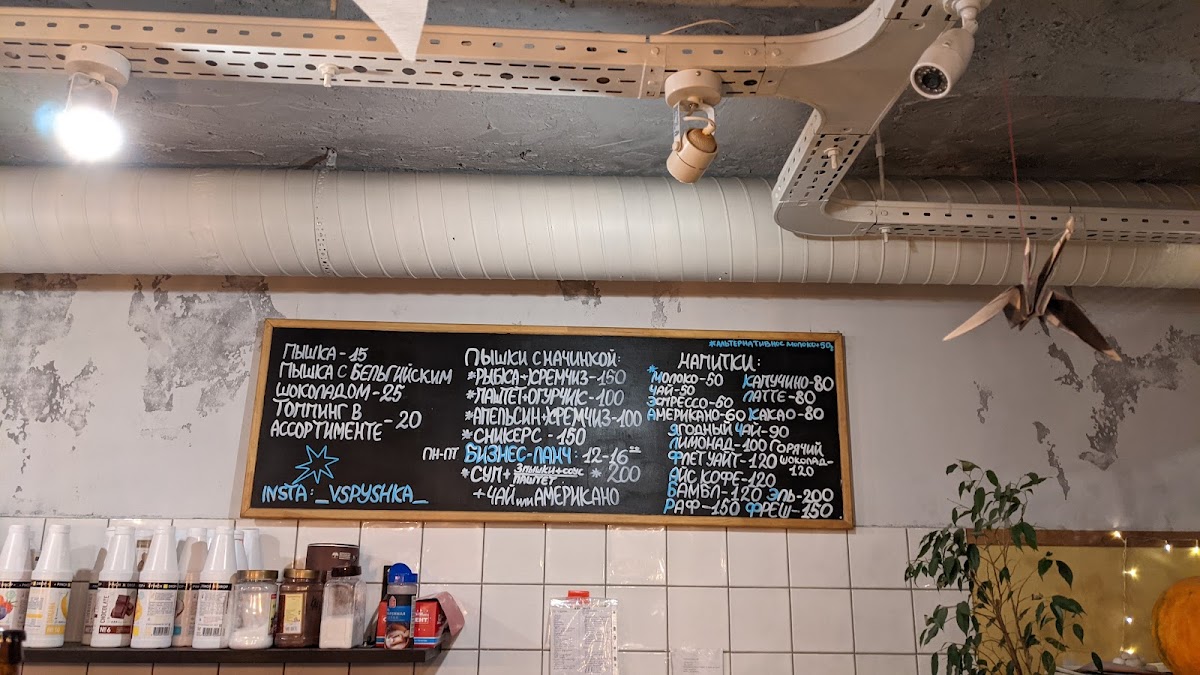 ПЫШКА - 15
ПЫШКА С БЕЛЬГИЙСКИМ
ШОКОЛАДОМ - 25
ТОППИНГ В
АССОРТИМЕНТЕ - 20
INSTA: _VSPYSHKA_
ПЫШКИ С НАЧИНКОЙ:
*РЫБКА+КРЕМЧИЗ-150
*ПАШТЕТ+ОГУРЧИК-100
*АПЕЛЬСИН+КРЕМЧИЗ-100
*СНИКЕРС - 150
ПН-ПТ БИЗНЕС-ЛАНЧ: 12-16⁰⁰
*СУП+ 3 ПЫШКИ+СОУС * 200
ПАШТЕТ
+ ЧАЙ ИЛИ АМЕРИКАНО
*АЛЬТЕРНАТИВНОЕ МОЛОКО+50
НАПИТКИ:
*МОЛОКО-50
ЧАЙ-50
ЭСПРЕССО-60
АМЕРИКАНО-60
КАПУЧИНО-80
ЛАТТЕ-80
КАКАО-80
ЯГОДНЫЙ ЧАЙ-90
ЛИМОНАД-100
ФЛЕТ УАЙТ-120
ГОРЯЧИЙ
ШОКОЛАД-
120
АЙС КОФЕ-120
БАМБЛ-120
ЭЛЬ-200
РАФ-150
ФРЕШ-150
CHOCOLATE
№6